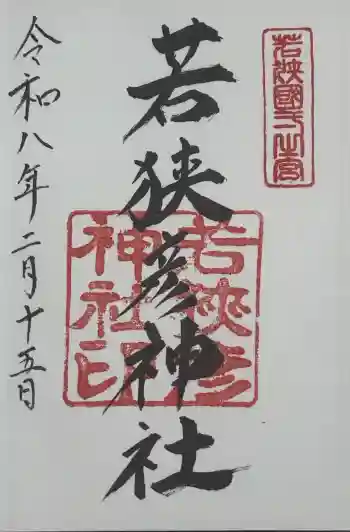 若狭國一之宮
若狭彦神社
若狭彦神社印
令和八年二月十五日